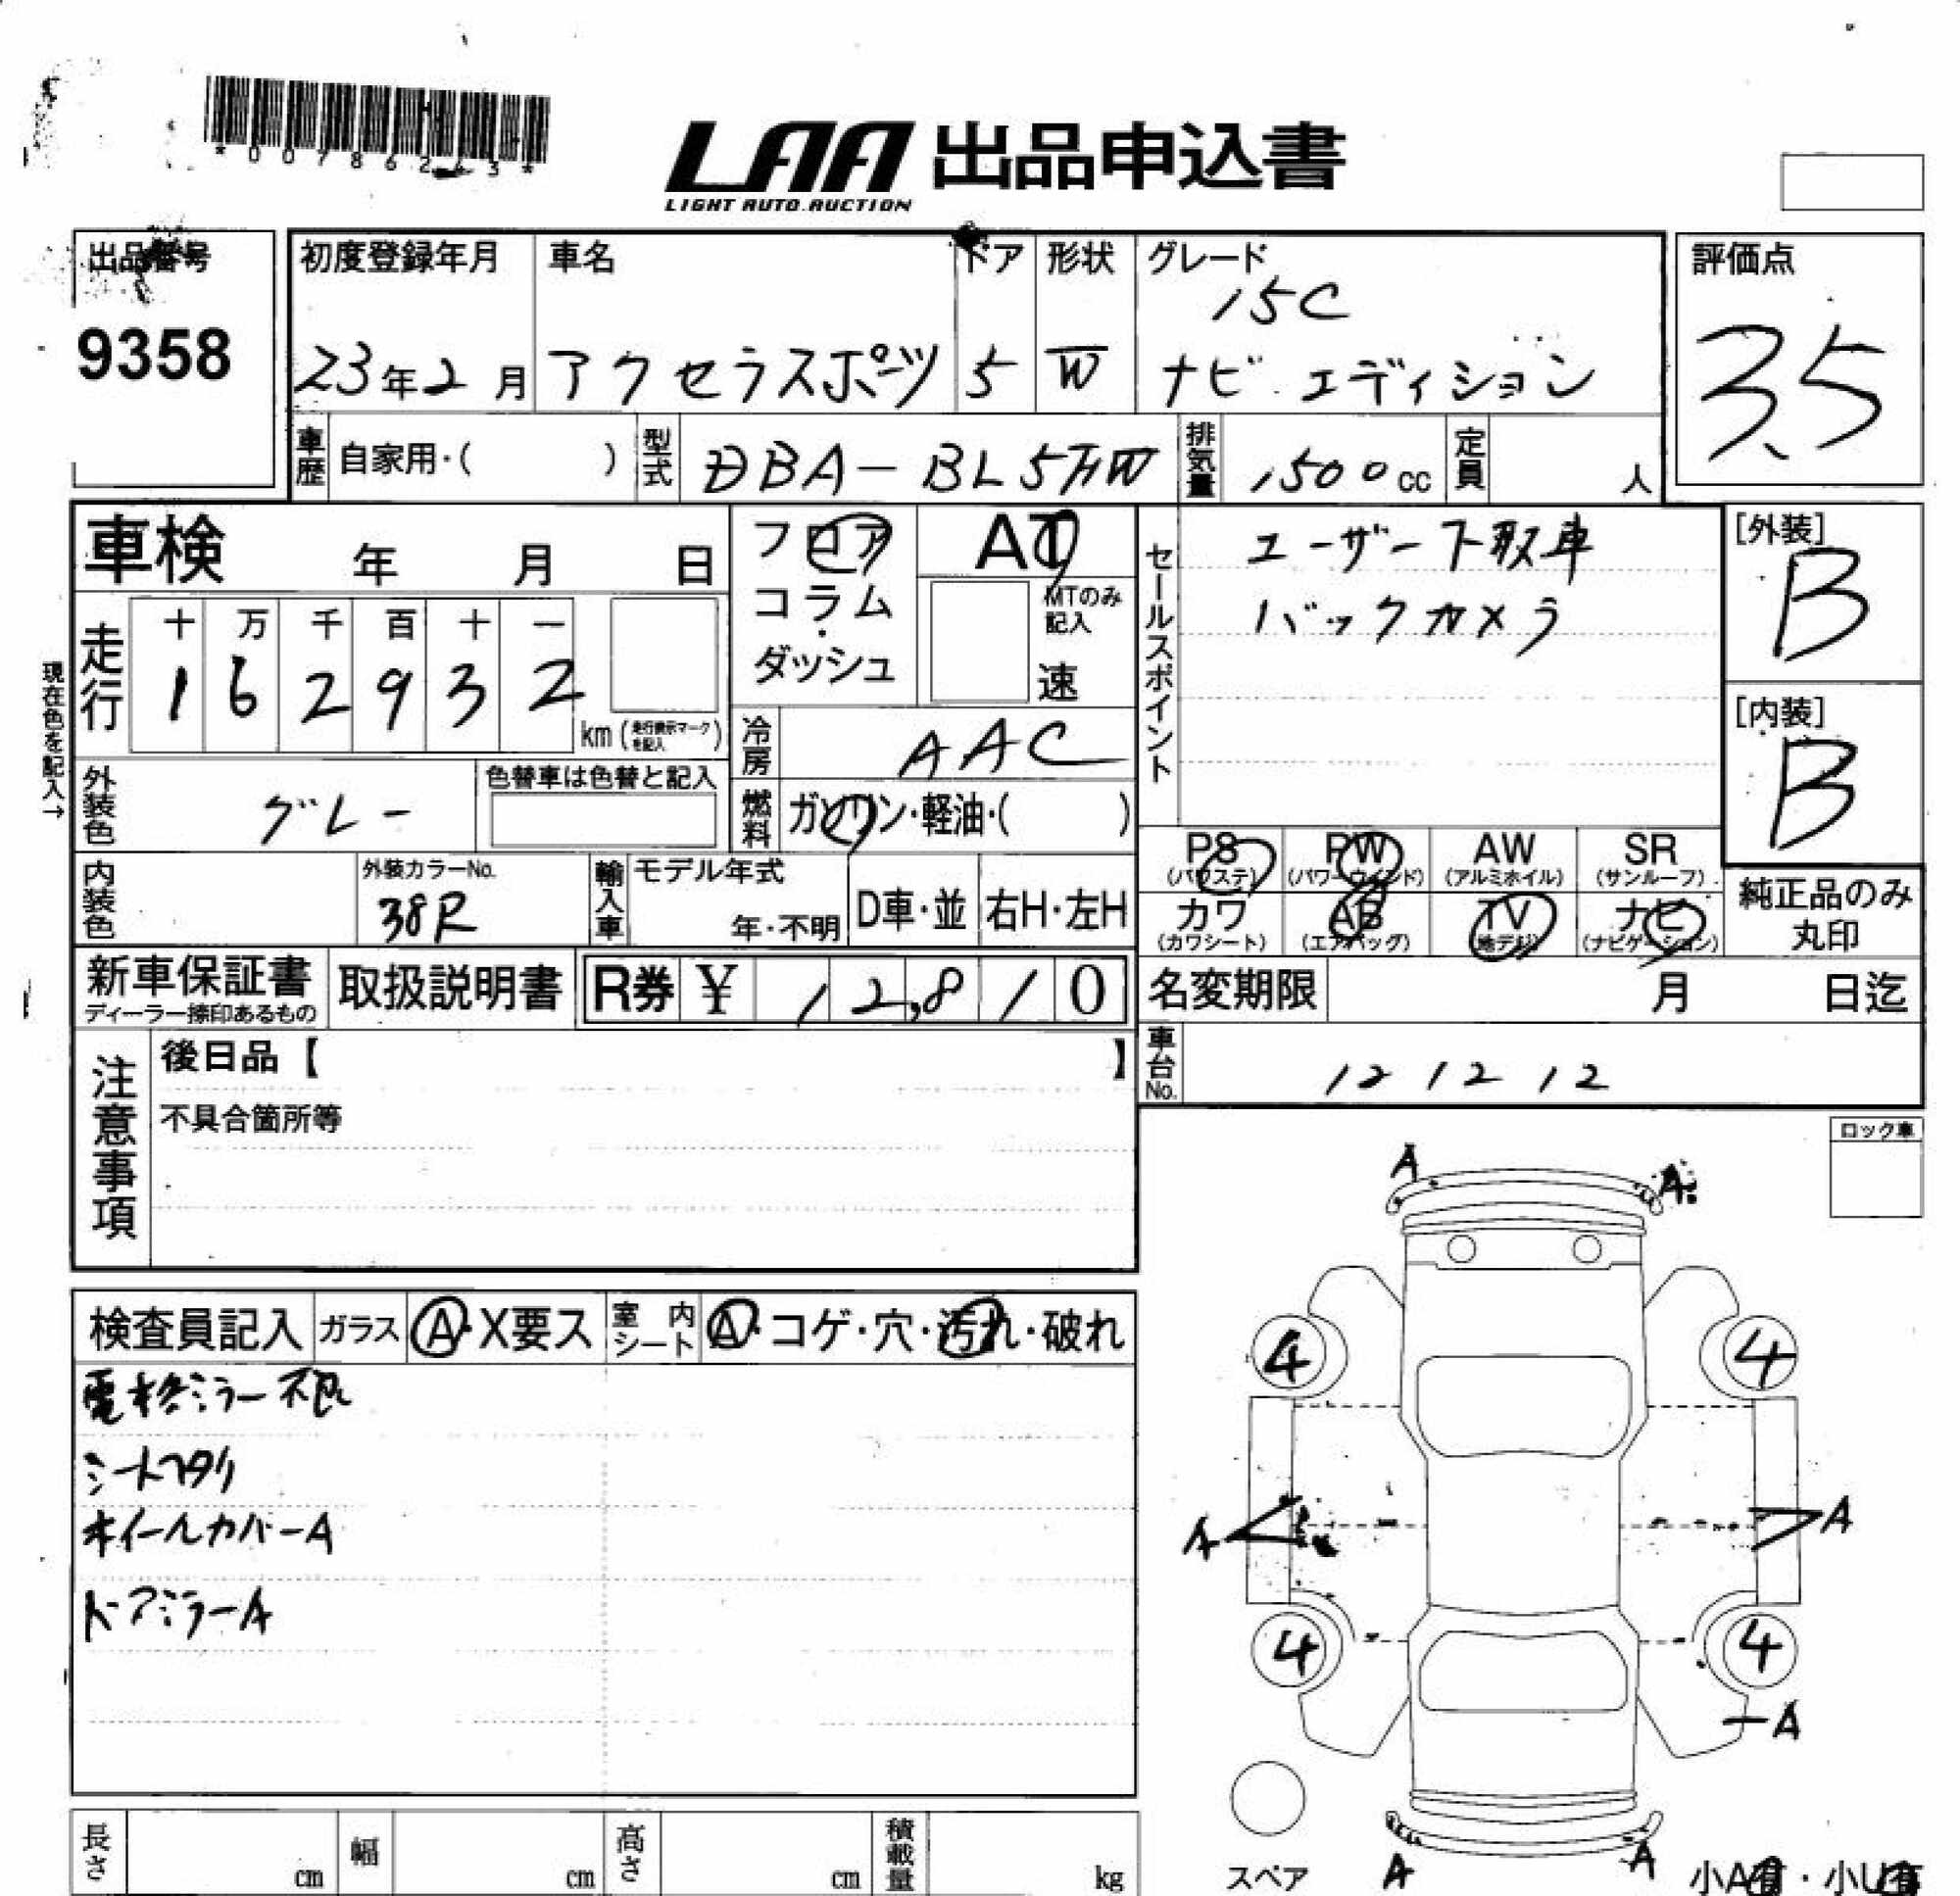 *00786243*
LAA 出品申込書
LIGHT AUTO.AUCTION
出品番号
9358
初度登録年月
23年2月
車名
アクセラスポーツ
ドア
5
形状
W
グレード
15C
ナビエディション
評価点
3.5
車歴 自家用・( )
型式 DBA-BL5FW
排気量 1500cc
定員 人
車検 年 月 日
フロア
コラム
・
ダッシュ
AT
MTのみ
記入
速
現在色を記入→
走行
十 万 千 百 十 一
1 6 2 9 3 2
km(走行表示マークを記入)
冷房 AAC
外装色 グレー
色替車は色替と記入
燃料 ガソリン・軽油・( )
内装色
外装カラーNo.
38R
輸入車
モデル年式
年・不明
D車・並
右H・左H
セールスポイント
ユーザー下取車
バックカメラ
[外装]
B
[内装]
B
PS
(パワステ)
PW
(パワーウインド)
AW
(アルミホイル)
SR
(サンルーフ)
カワ
(カワシート)
AB
(エアバッグ)
TV
(地デジ)
ナビ
(ナビゲーション)
純正品のみ
丸印
新車保証書
ディーラー捺印あるもの
取扱説明書
R券 ¥ 12,810
名変期限 月 日迄
車台No. 121212
注意事項
後日品【 】
不具合箇所等
ロック車
検査員記入 ガラス A・X要ス 室内シート A・コゲ・穴・汚れ・破れ
電格ミラー不良
シートヘタリ
ホイールカバーA
ドアミラーA
A A
4 4
A A
4 4
A
A A
スペア
小A有・小U有
長さ cm
幅 cm
高さ cm
積載量 kg